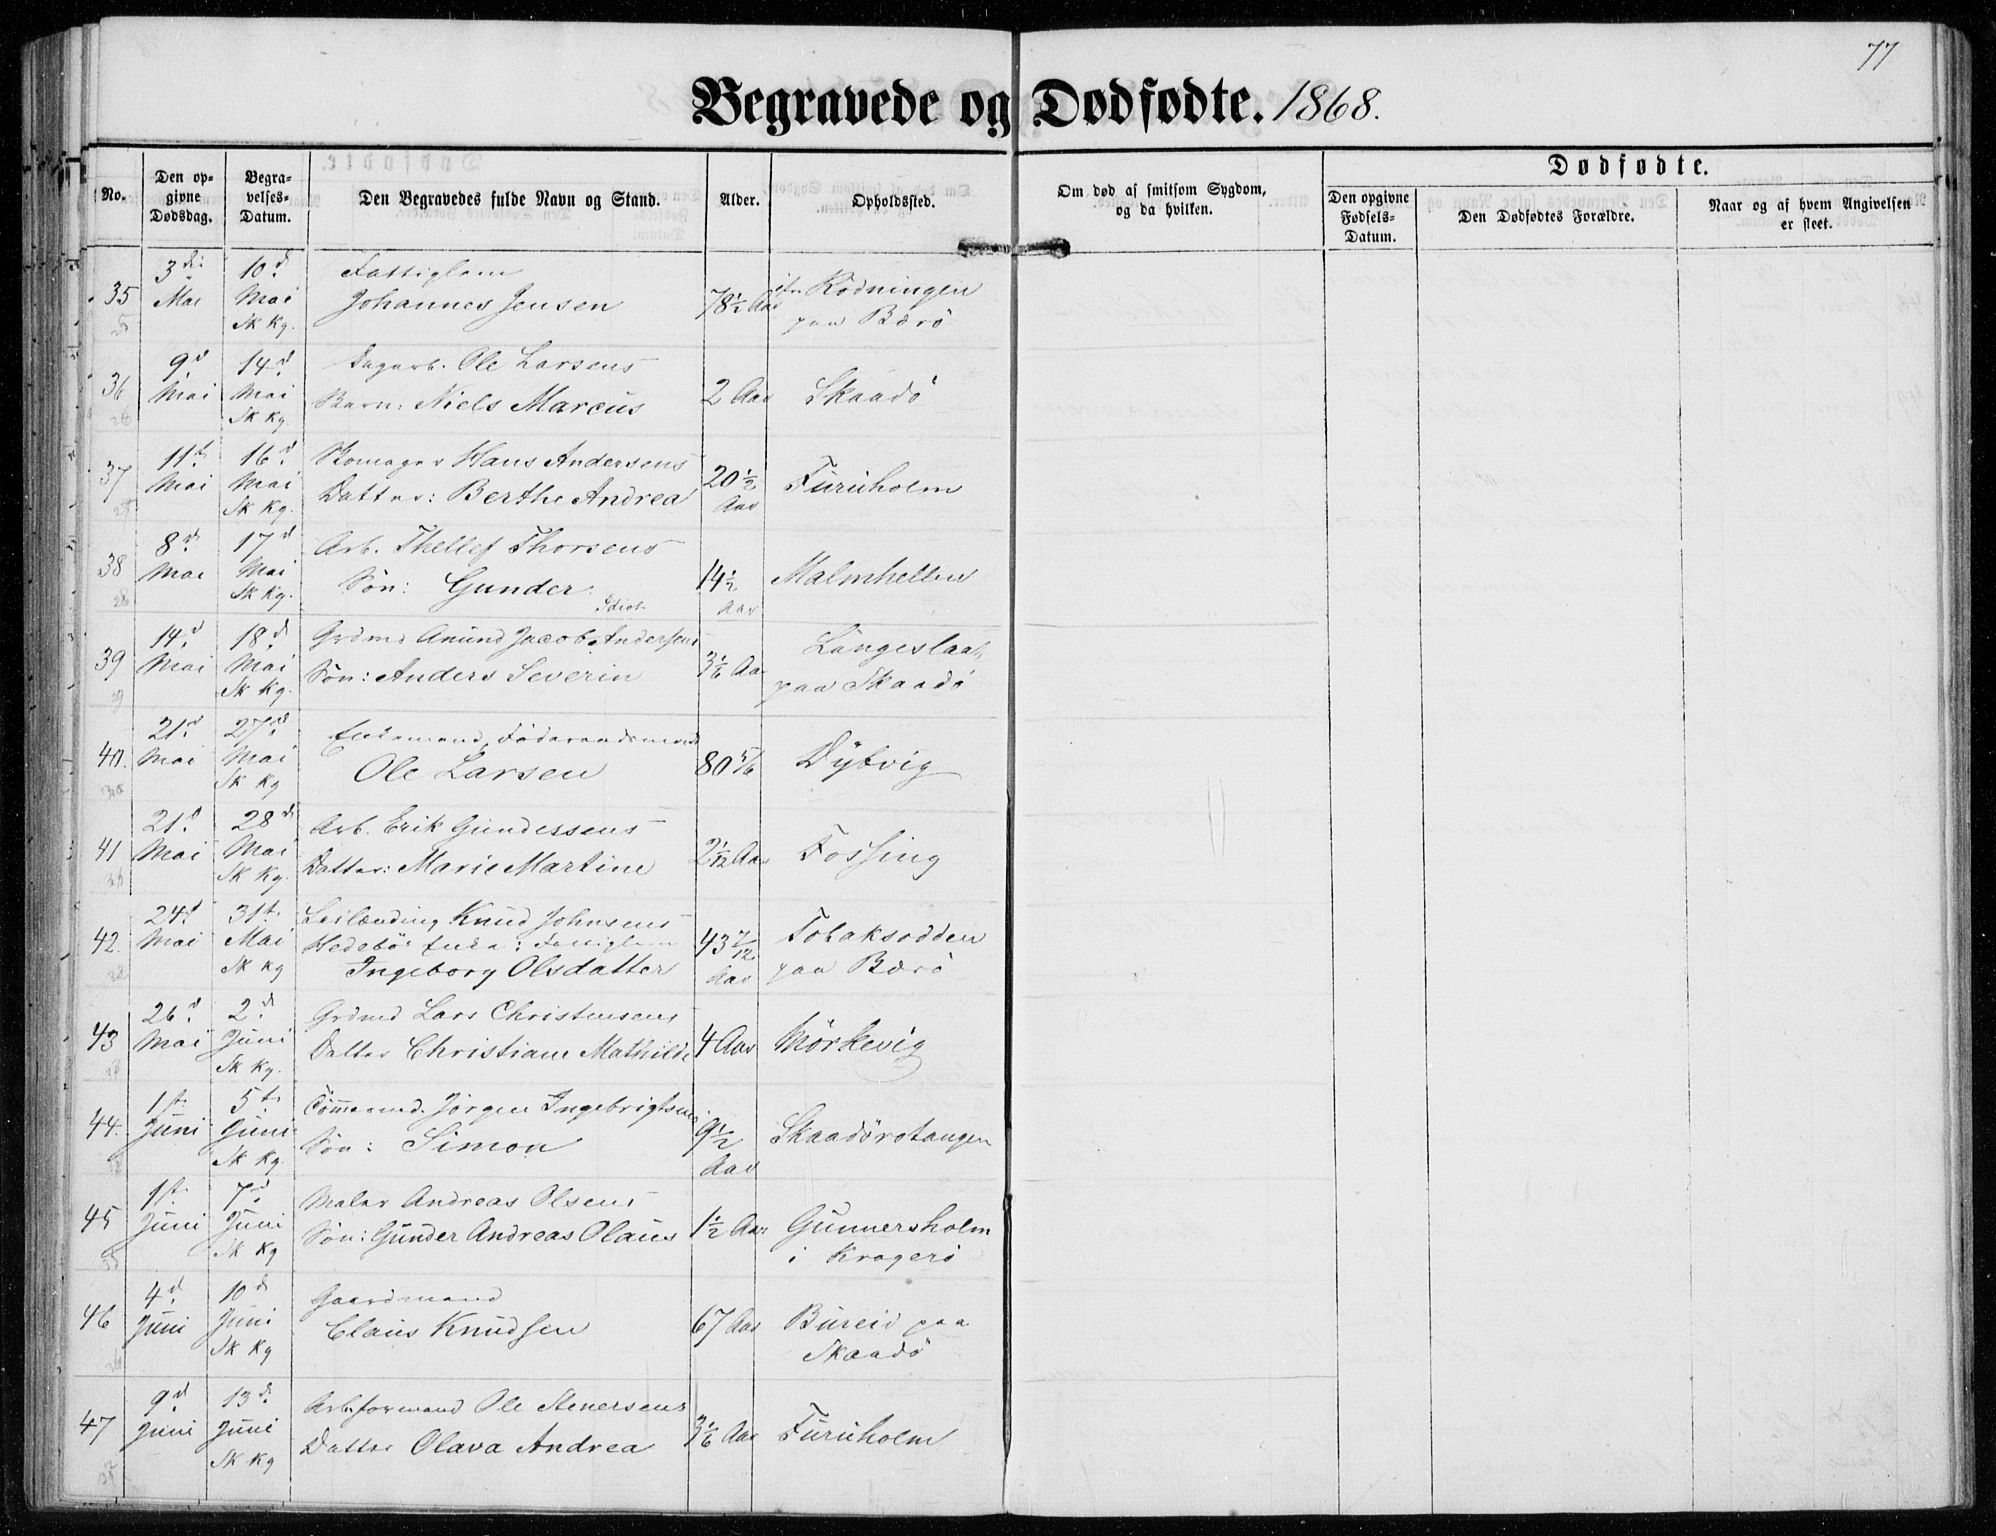 77
Begravede og Dødfødte. 1868.
No.
Den opgivne Dødsdag.
Begravelses-Datum.
Den Begravedes fulde Navn og Stand.
Alder.
Opholdssted.
Om død af smitsom Sygdom, og da hvilken.
Dødfødte.
Den opgivne Fødsels-Datum.
Den Dødfødtes Forældre.
Naar og af hvem Angivelsen er skeet.
35 3die Mai 10d Mai Sk Kg. Fattiglem Johannes Jensen 78 1/2 Aar Rødningen paa Berø
36 9d Mai 14d Mai Sk Kg Dagarb. Ole Larsens Barn: Niels Marcus 2 Aar Skaadø
37 11te Mai 16d Mai Sk Kg. Skomager Hans Andersens Datter: Berthe Andrea 20 1/2 Aar Furuholm
38 8d Mai 17d Mai Sk Kg. Arb. Thellef Thorsens Søn: Gunder Idiot 14 1/2 Aar Malmhellen
39 14d Mai 18d Mai Sk Kg. Grdmd Anund Jacob Andersens Søn: Anders Severin 3 1/6 Aar Langeslaat paa Skaadø
40. 21d Mai 27d Mai Sk Kg Enkemand, Føderaadsmand Ole Larsen 80 5/6 Dybvig
41 21d Mai 28d Mai Sk Kg. Arb. Erik Gundersens Datter: Marie Martine 2 1/12 Aar Fossing
42. 24d Mai 31te Mai Sk Kg Leilænding Knud Johnsens Hedebøe Enke: Fattiglem Ingeborg Olsdatter 43 7/12 Aar Tobaksodden paa Berø
43 26d Mai 2d Juni Sk Kg. Grdmd Lars Christensens Datter Christiane Mathilde 4 Aar Mørkevig
44. 1ste Juni 5te Juni Sk Kg. Tømmermd. Jørgen Ingebrigtsens Søn: Simon 9 1/2 Aar Skaadørotangen
45 1ste Juni 7d Juni Sk Kg Maler Andreas Olsens Søn: Gunder Andreas Olaus 1 1/2 Aar Gunnersholm i Kragerø
46 4d Juni 10d Juni Sk Kg Gaardmand Claus Knudsen 67 Aar Bureid paa Skaadø
47 9d Juni 13d Juni Sk Kg Arb.formand Ole Stenersens Datter Olava Andrea 3 1/6 Aar Furuholm